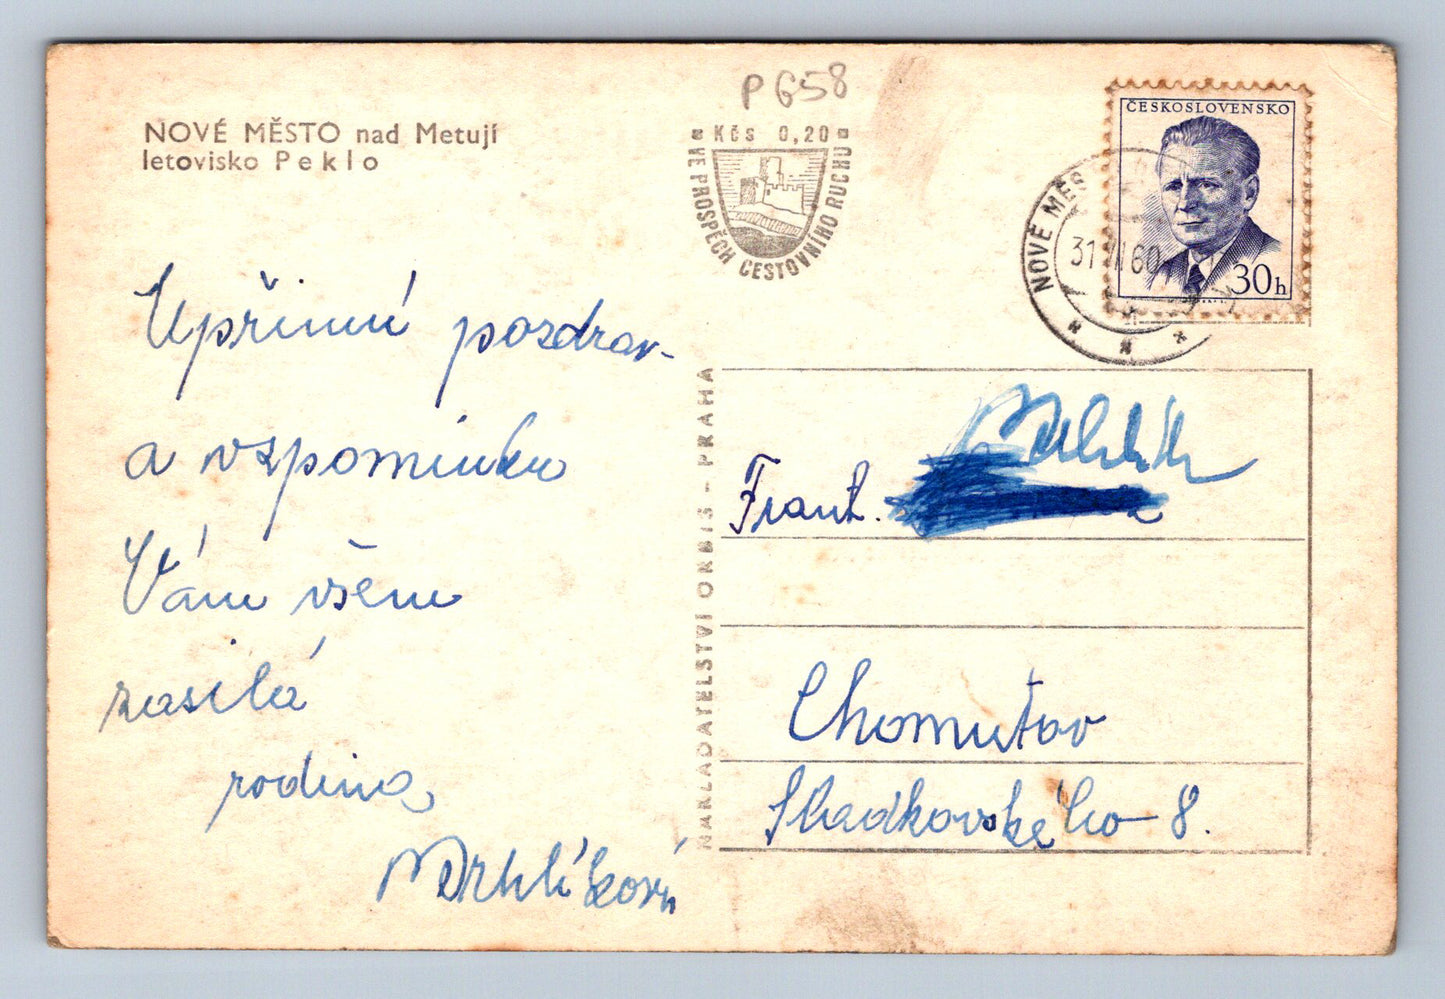 P 658
NOVÉ MĚSTO nad Metují
letovisko Peklo
Kčs 0,20
VE PROSPĚCH CESTOVNÍHO RUCHU
ČESKOSLOVENSKO
30h
NOVÉ MĚS
31 60
Upřímný pozdrav
a vzpomínku
Vám všem
zasílá
rodina
NAKLADATELSTVÍ ORBIS - PRAHA
Frant.
Chomutov
Sladkovského 8.